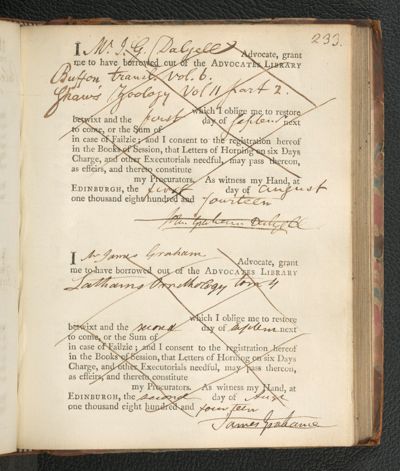 233.
I Mr. J. G. Dalyell Advocate, grant
me to have borrowed out of the ADVOCATES LIBRARY
Buffon transl. vol. 6.
Shaw's Zoology Vol 11 part 2.
which I oblige me to restore
betwixt and the first day of Septemr next
to come, or the Sum of
in case of Failzie; and I consent to the registration hereof
in the Books of Session, that Letters of Horning on six Days
Charge, and other Executorials needful, may pass thereon,
as effeirs, and thereto constitute
my Procurators. As witness my Hand, at
EDINBURGH, the first day of August
one thousand eight hundred and fourteen
John Graham Dalyell
I Mr James Graham Advocate, grant
me to have borrowed out of the ADVOCATES LIBRARY
Lathams Ornithology tom 4
which I oblige me to restore
betwixt and the second day of Septem next
to come, or the Sum of
in case of Failzie; and I consent to the registration hereof
in the Books of Session, that Letters of Horning on six Days
Charge, and other Executorials needful, may pass thereon,
as effeirs, and thereto constitute
my Procurators. As witness my Hand, at
EDINBURGH, the second day of Augt
one thousand eight hundred and fourteen
James Grahame